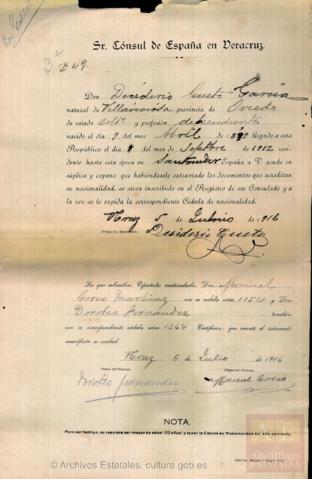 Sr. Cónsul de España en Veracruz.
3ª
B 49.
Don Desiderio Cueto García
natural de Villaviciosa provincia de Oviedo
de estado solt° y profesión dependiente
nacido el día 9 del mes Abril de llegado a esta
República el día 9 del mes de Septbre de 1912 resi-
dente hasta esta época en Santander España a V. acude en
súplica y expone: que habiéndosele extraviado los documentos que acreditan
su nacionalidad, se sirva inscribirle en el Registro de ese Consulado y a
la vez se le expida la correspondiente Cédula de nacionalidad.
Vcruz 5 de Julio de 1916
Firma del Interesado
Desiderio Cueto
Los que subscriben, Españoles matriculados, Don Manuel
Corso Martinez con su cédula núm. 1152 y Don
Doroteo Fernandez también
con su correspondiente cédula núm. 1364 Certifican: que cuanto el interesado
manifiesta es verdad.
Vcruz 5 de Julio de 1916
Firma del Testigo. Firma del Testigo.
Doroteo Fernandez Manuel Corso
NOTA.
Para ser testigo, se requiere ser mayor de edad (23 años) y tener la Cédula de Nacionalidad del año corriente.
ARCHIVOS ESTATALES
© Archivos Estatales, cultura.gob.es